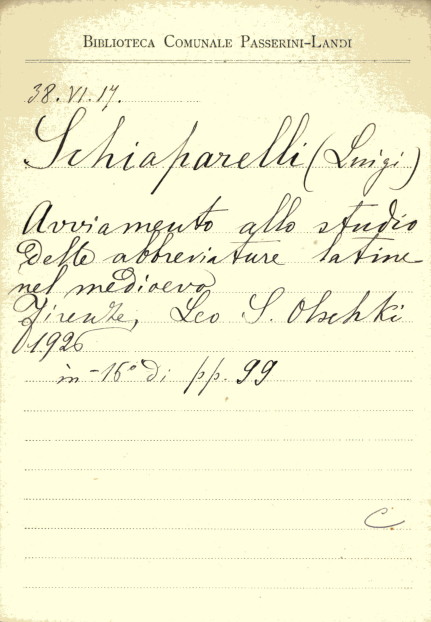 BIBLIOTECA COMUNALE PASSERINI-LANDI
38.VI.17.
Schiaparelli (Luigi)
Avviamento allo studio
delle abbreviature latine
nel medioevo
Firenze, Leo S. Olschki
1926
in-16° di pp. 99
C